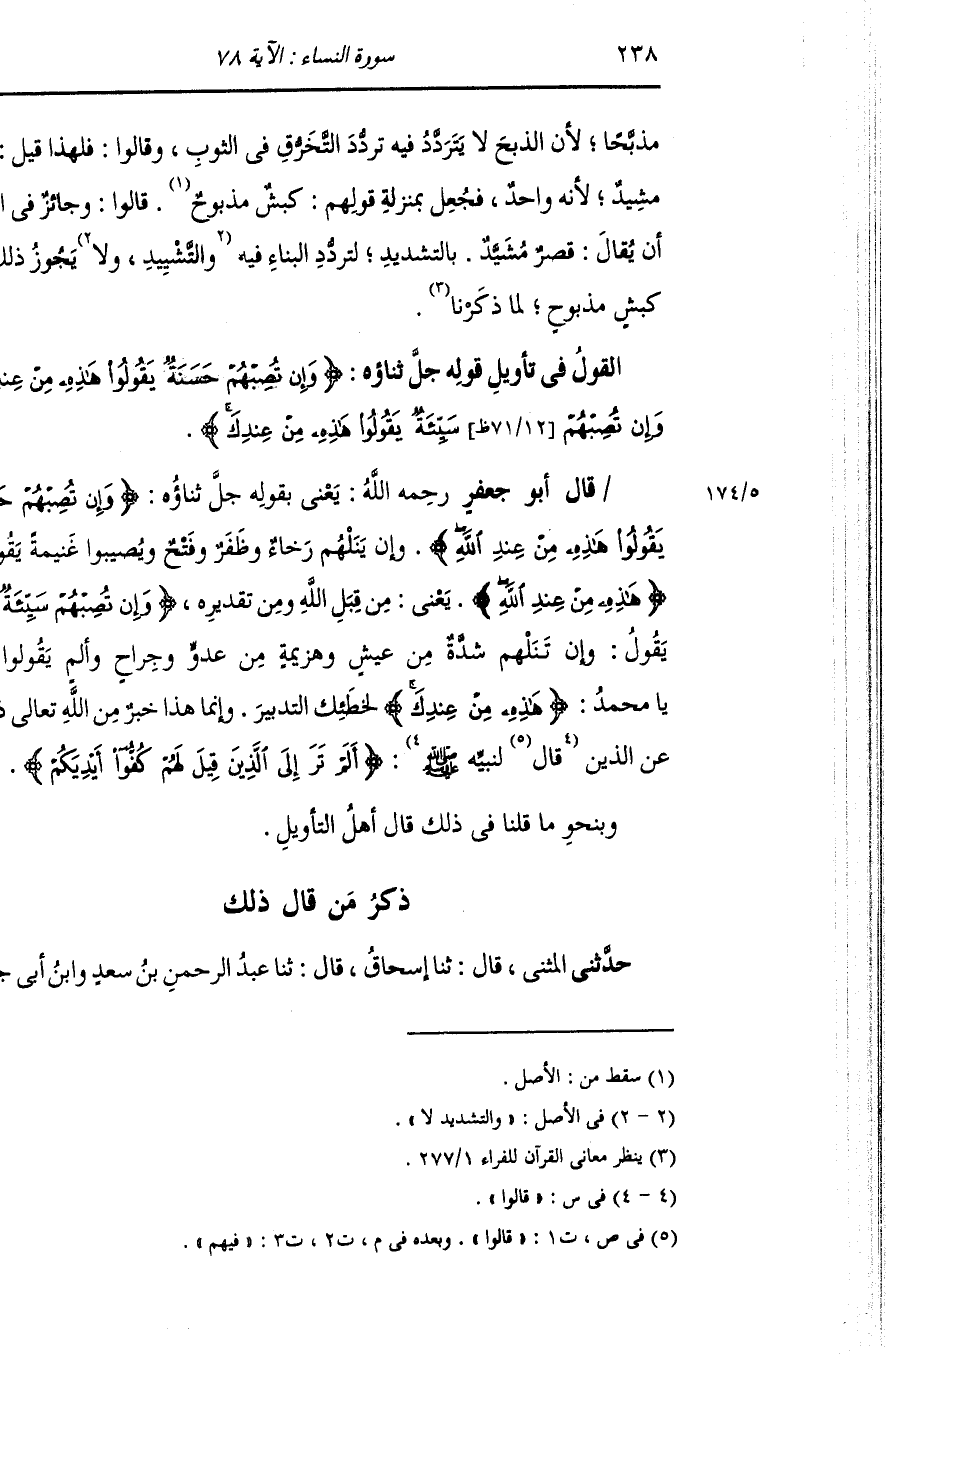 ٢٣٨ سورة النساء : الآية ٧٨
مذبَّحًا ؛ لأن الذبحَ لا يَتَرَدَّدُ فيه تردُّدَ التَّخَرُّقِ فى الثوبِ ، وقالوا : فلهذا قيل :
مشِيدٌ ؛ لأنه واحدٌ ، فجُعِل بمنزلةِ قولِهم : كبشٌ مذبوحٌ(١) . قالوا : وجائزٌ فى
أن يُقالَ : قصرٌ مُشَيَّدٌ . بالتشديدِ ؛ لتردُّدِ البناءِ فيه (٢والتَّشْيِيدِ ، ولا٢) يَجُوزُ
كبشٍ مذبوحٍ ؛ لما ذكَرْنا(٣) .
القولُ فى تأويلِ قولِه جلَّ ثناؤه : ﴿ وَإِن تُصِبْهُمْ حَسَنَةٌ يَقُولُوا۟ هَٰذِهِۦ مِنْ
وَإِن تُصِبْهُمْ [٧١/١٢ظ] سَيِّئَةٌ يَقُولُوا۟ هَٰذِهِۦ مِنْ عِندِكَ ۚ ﴾ .
١٧٤/٥ / قال أبو جعفرٍ رحِمه اللَّهُ : يَعْنى بقولِه جلَّ ثناؤُه : ﴿ وَإِن تُصِبْهُمْ
يَقُولُوا۟ هَٰذِهِۦ مِنْ عِندِ ٱللَّهِ ۖ ﴾ . وإن يَنَلْهُم رَخاءٌ وظَفَرٌ وفَتْحٌ ويُصيبوا غَنيمةً
﴿ هَٰذِهِۦ مِنْ عِندِ ٱللَّهِ ۖ ﴾ . يَعْنى : مِن قِبَلِ اللَّهِ ومِن تقديرِه ، ﴿ وَإِن تُصِبْهُمْ سَيِّئَةٌ
يَقُولُ : وإن تَنَلْهم شدَّةٌ مِن عيشٍ وهزيمةٍ مِن عدوٍّ وجِراحٍ وألمٍ يَقُولوا
يا محمدُ : ﴿ هَٰذِهِۦ مِنْ عِندِكَ ۚ ﴾ لخطَئِك التدبيرَ . وإنما هذا خبرٌ مِن اللَّهِ تعالى
عن الذين (٤قال(٥) لنبيِّه ﷺ٤) : ﴿ أَلَمْ تَرَ إِلَى ٱلَّذِينَ قِيلَ لَهُمْ كُفُّوٓا۟ أَيْدِيَكُمْ ﴾ .
وبنحوِ ما قلنا فى ذلك قال أهلُ التأويلِ .
ذكرُ مَن قال ذلك
حدَّثنى المثنى ، قال : ثنا إسحاقُ ، قال : ثنا عبدُ الرحمنِ بنُ سعدٍ وابنُ أبى
(١) سقط من : الأصل .
(٢ - ٢) فى الأصل : « والتشديد لا » .
(٣) ينظر معانى القرآن للفراء ٢٧٧/١ .
(٤ - ٤) فى س : « قالوا » .
(٥) فى ص ، ت١ : « قالوا » . وبعده فى م ، ت٢ ، ت٣ : « فيهم » .